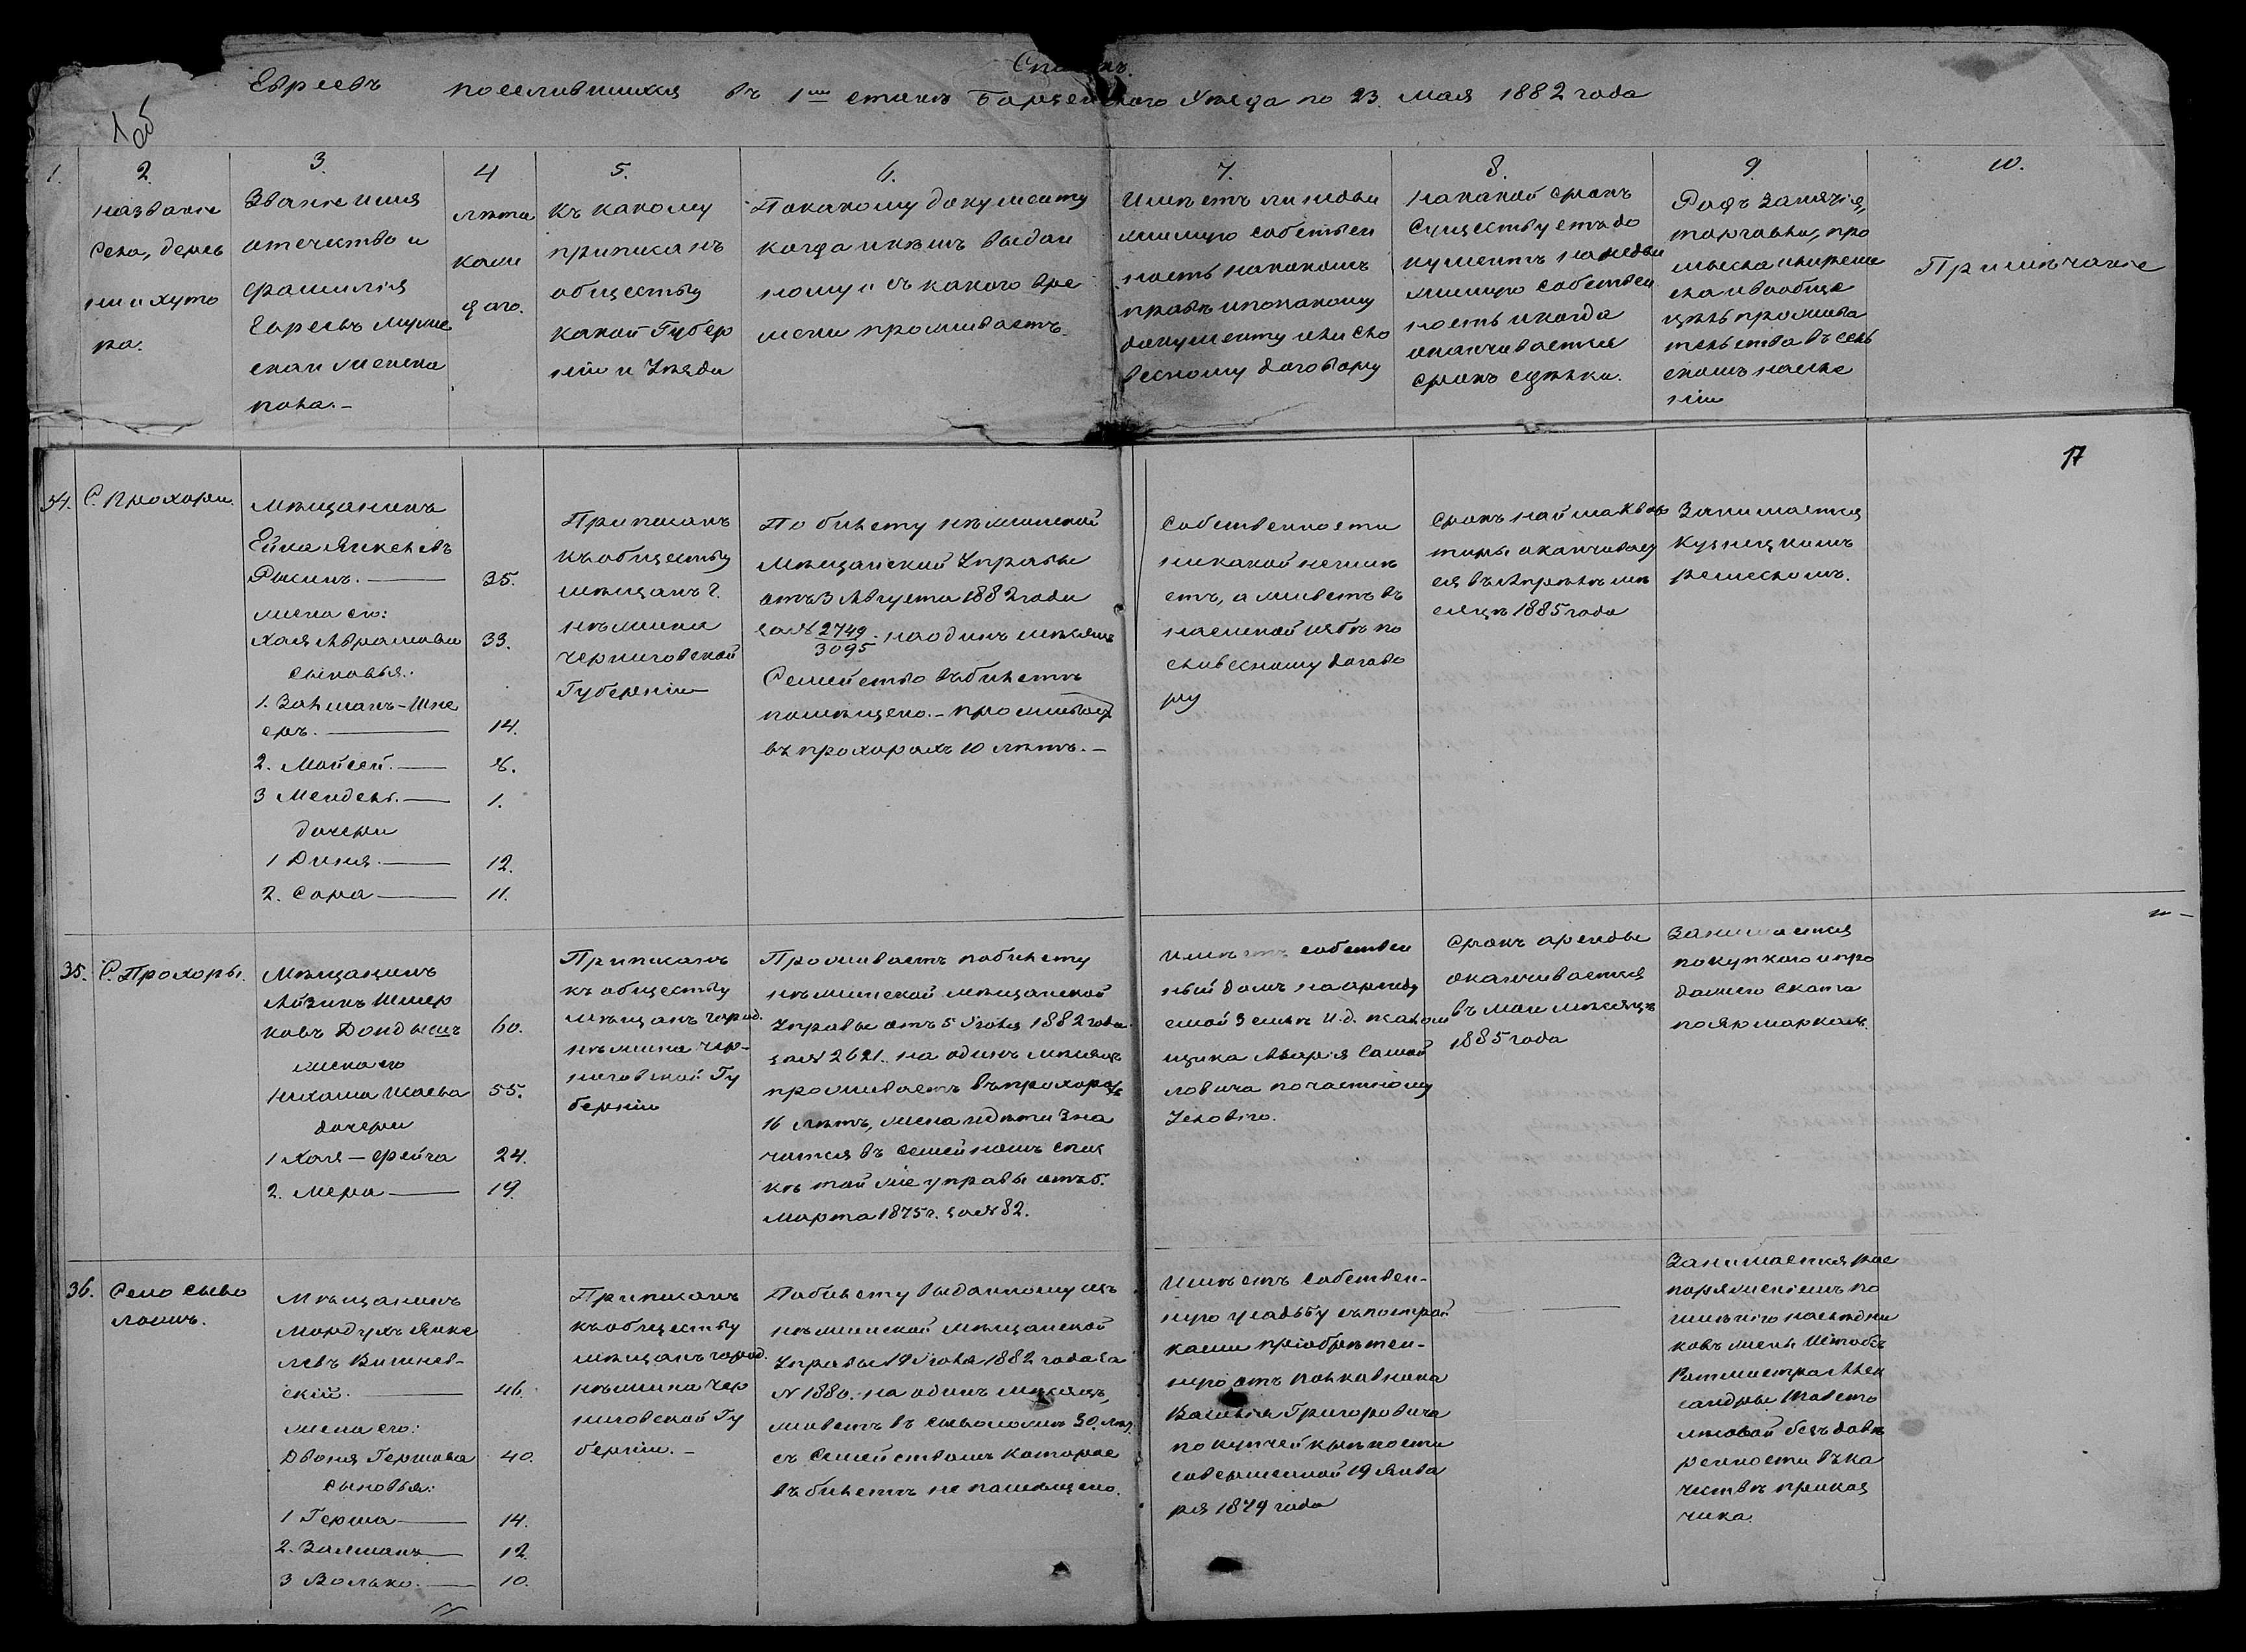 Списокъ
Евреевъ поселившихся въ 1мъ станѣ Борзенскаго Уѣзда по 23 мая 1882 года
1об
1.
2.
Названіе
села, дерев
ни и хуто
ра.
3.
Званіе имя
отечество и
фамилія
Евреевъ муже
ска и женска
пола.-
4
лѣта
каж
даго.
5.
Къ какому
приписанъ
обществу
какой Губер
ніи и Уѣзда
6.
По какому документу
когда и кѣмъ выдан
ному и съ какого вре
мени проживаетъ.
7.
Имѣетъ ли недви
жимую собствен
ность на какомъ
правѣ и по какому
документу или сло
весному договору
8.
На какой срокъ
существуетъ до
кументъ на недви
жимую собствен
ность и когда
оканчивается
срокъ сдѣлки.
9.
Родъ занятія,
торговли, про
мысла и ремеслa и вообще
цѣль прожива
тельства въ сель
скомъ населе
ніи
10.
Примѣчаніе
17
34.
С. Прохоры.
Мѣщанинъ
Ейна Янкелевъ
Рысинъ. — 35.
жена его:
Хая Абрамова 33.
сыновья:
1. Залманъ-Шне
еръ. — 14.
2. Мойсей. — 8.
3 Мендель. — 1.
дочери
1 Диня. — 12.
2. Сора — 11.
Приписанъ
къ обществу
мѣщанъ г.
Нѣжина
Черниговской
Губерніи
По билету Нѣжинской
Мѣщанской Управы
отъ 3 Августа 1882 года
за № 2749/3095 на одинъ мѣсяцъ
Семейство въ билетѣ
помѣщено.- проживаетъ
въ Прохорахъ 10 лѣтъ.-
Собственности
никакой не имѣ
етъ, а живетъ въ
наемной избѣ по
словесному догово
ру
Срокъ найма квар
тиры оканчивает
ся въ Апрѣлѣ мѣ
сяцѣ 1885 года
Занимается
кузнецкимъ
ремесломъ.
35.
С. Прохоры.
Мѣщанинъ
Айзикъ Шмер
ковъ Дондышъ 60.
жена его
Нихама Шаева 55.
дочери
1 Хая-Фейга 24.
2. Мера — 19.
Приписанъ
къ обществу
мѣщанъ город.
Нѣжина Чер-
ниговской Гу
берніи
Проживаетъ по билету
Нѣжинской мѣщанской
Управы отъ 5 Іюля 1882 года
за № 2621. на одинъ мѣсяцъ
проживаетъ въ Прохорахъ
16 лѣтъ, жена и дѣти зна
чатся въ семейномъ спис
кѣ той же управы отъ 6.
Марта 1875 г. за № 82.
Имѣетъ собствен
ный домъ на арендуемой землѣ и.д. псалом
щика Андрея Самой
ловича по частному
условію.
Срокъ аренды
оканчивается
въ маи мѣсяцѣ
1885 года
Занимается
покупкою и про
дажею скота
по ярмаркамъ.
36.
Село Сыво
ложъ.
Мѣщанинъ
Мордухъ Янке
левъ Вишнев-
скій. — 46.
жена его:
Двойя Гершова 40.
сыновья:
1 Герша — 14.
2. Залманъ — 12.
3 Волько. — 10.
Приписанъ
къ обществу
мѣщанъ город.
Нѣжина Чер
ниговской Гу
берніи.-
По билету выданному изъ
Нѣжинской мѣщанской
Управы 19 Іюля 1882 года за
№ 1880. на одинъ мѣсяцъ,
живетъ въ Сыволожѣ 30 лѣтъ
съ семействомъ которое
въ билетѣ не помѣщено.
Имѣетъ собствен-
ную усадьбу съ построй
ками пріобрѣтен-
ную отъ Полковника
Василія Григоровича
по купчей крѣпости
совершенной 19 Янва
ря 1879 года
Занимается рас
поряженіемъ по
имѣнію наслѣдни
ковъ жены Штабъ
Ротмистра Алек
сандры
безъ довѣ
ренности въ ка
чествѣ прикаs
чика.